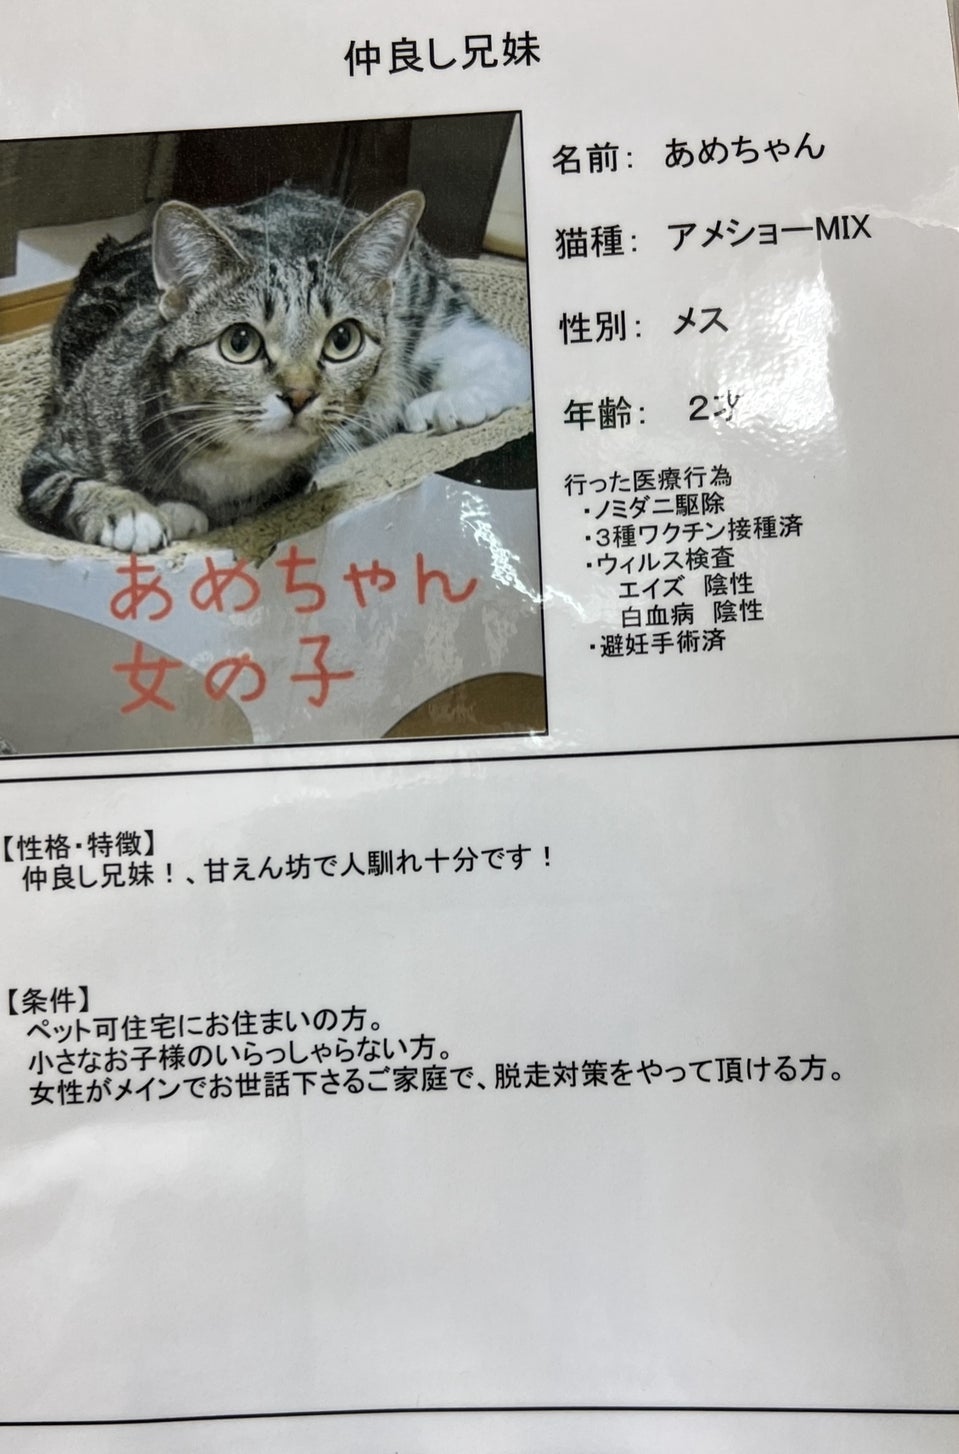 仲良し兄妹
名前： あめちゃん
猫種： アメショーMIX
性別： メス
年齢： ２
行った医療行為
・ノミダニ駆除
・３種ワクチン接種済
・ウィルス検査
エイズ 陰性
白血病 陰性
・避妊手術済
あめちゃん
女の子
【性格・特徴】
仲良し兄妹！、甘えん坊で人馴れ十分です！
【条件】
ペット可住宅にお住まいの方。
小さなお子様のいらっしゃらない方。
女性がメインでお世話下さるご家庭で、脱走対策をやって頂ける方。